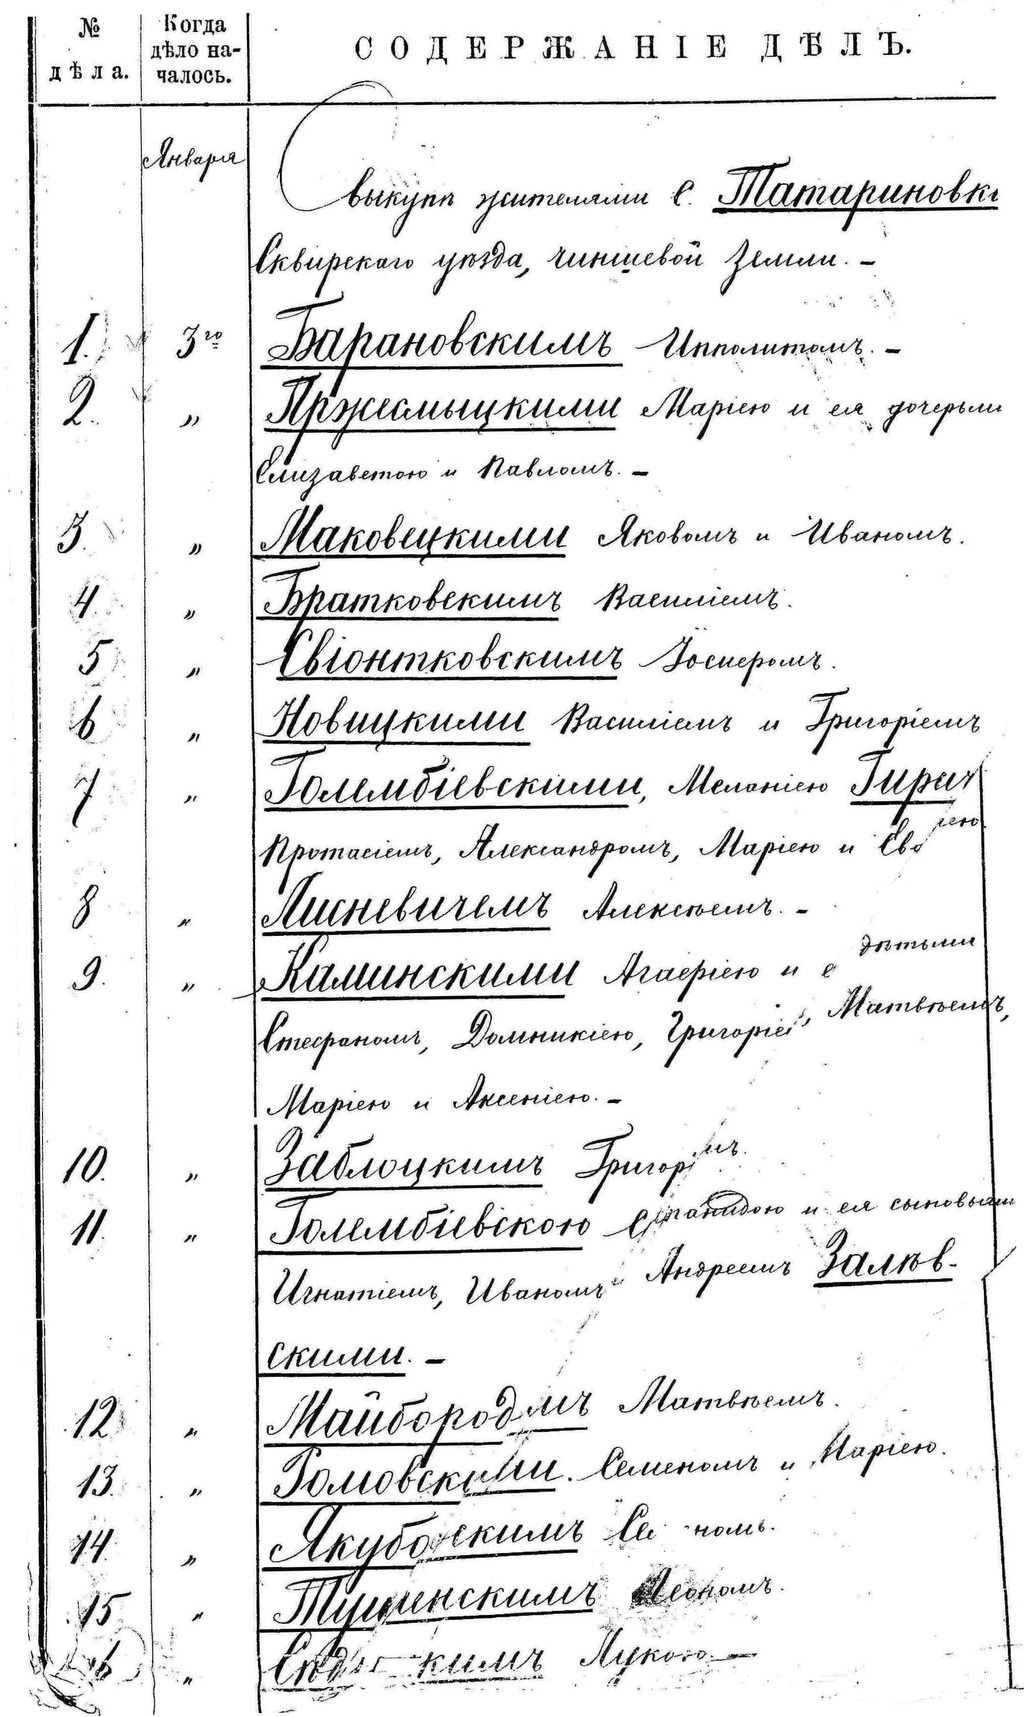 № дѣла.
Когда дѣло началось.
СОДЕРЖАНІЕ ДѢЛЪ.
Января
О выкупѣ жителями с. Татариновки
Сквирскаго уѣзда, чиншевой земли. –
1. 3го Барановскимъ Ипполитомъ. –
2. „ Пржесмыцкими Маріею и ея дочерьми
Елизаветою и Павломъ. –
3. „ Маковецкими Яковомъ и Иваномъ.
4. „ Братковскимъ Василіемъ.
5. „ Свіонтковскимъ
6 „ Новицкими Василіемъ и Григоріемъ
7 „ Голембіевскими, Меланіею
Протасіемъ, Александромъ, Маріею и
8 „ Лисневичемъ Алексѣемъ. –
9. „ Каминскими Агафіею и дѣтьми
Стефаномъ, Домникіею, Матвѣемъ,
Маріею и Аксеніею. –
10. „ Заблоцкимъ
11. „ Голембіевскою и ея сыновьями
Игнатіемъ, Иваномъ и Андреемъ Залѣв-
скими. –
12. „ Матвѣемъ.
13. „ Семеномъ и Маріею.
14 „
15 „
„ Лукою. –